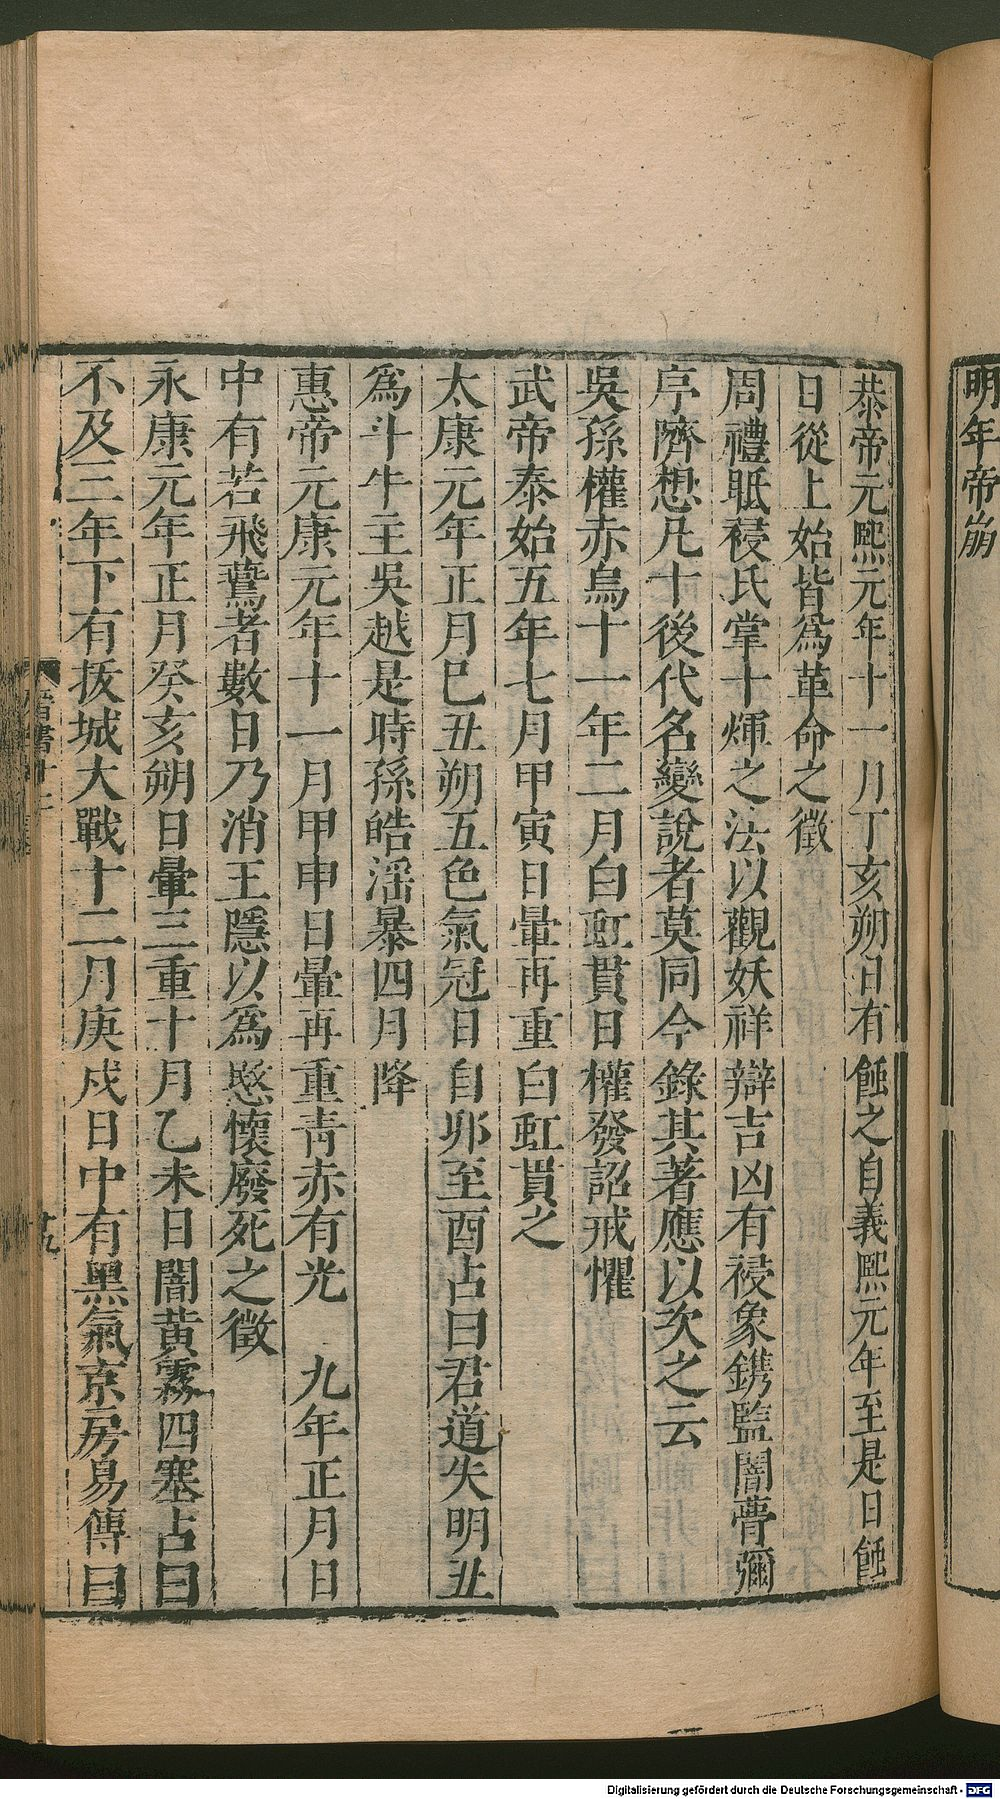 明年帝崩
恭帝元熙元年十一月丁亥朔日有蝕之自義熙元年至是日蝕
日從上始皆爲革命之徵
周禮眡祲氏掌十煇之法以觀妖祥辯吉凶有祲象鑴監闇瞢彌
序隮想凡十後代名變說者莫同今錄其著應以次之云
吳孫權赤烏十一年二月白虹貫日權發詔戒懼
武帝泰始五年七月甲寅日暈再重白虹貫之
太康元年正月巳丑朔五色氣冠日自卯至酉占曰君道失明丑
爲斗牛主吳越是時孫皓淫暴四月降
惠帝元康元年十一月甲申日暈再重青赤有光 九年正月日
中有若飛鷰者數日乃消王隱以爲愍懷廢死之徵
永康元年正月癸亥朔日暈三重十月乙未日闇黃霧四塞占曰
不及三年下有拔城大戰十二月庚戌日中有黑氣京房易傳曰
晉書十二
十九
Digitalisierung gefördert durch die Deutsche Forschungsgemeinschaft - DFG